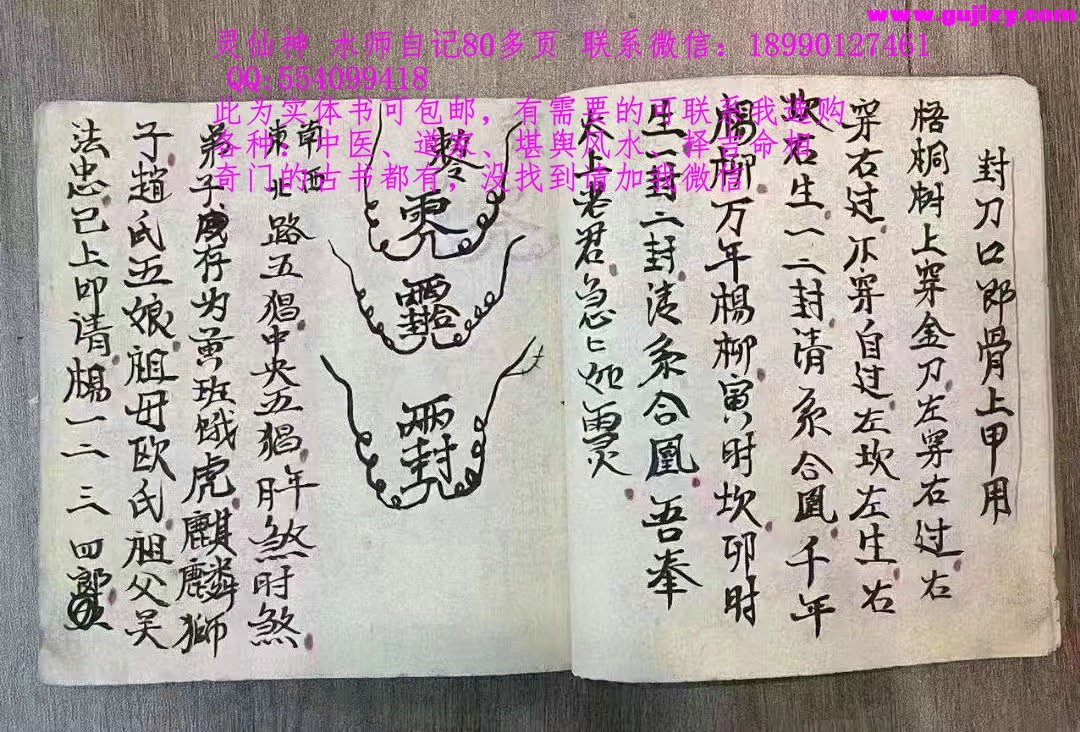 www.gujizy.com
灵仙神 水师自记80多页 联系微信：18990127461
QQ:554099418
此为实体书可包邮，有需要的可联系我选购
各种：中医、道家、堪舆风水、择吉命相
奇门的古书都有，没找到请加我微信
封刀口郎骨上甲用
梧桐树上穿金刀左穿右过右
穿右过不穿自过左坎左生右
坎右生一二封清糸合凰千年
楊柳万年楊柳寅时坎卯时
生一封二封清糸合凰吾奉
太上老君急匕如灵
南西
東北路五猖中央五猖年
月煞时煞
弟子為黄班饿虎麒麟獅
子趙氏五娘祖母欧氏祖父吴
法忠已上叩请楊一二三四郎